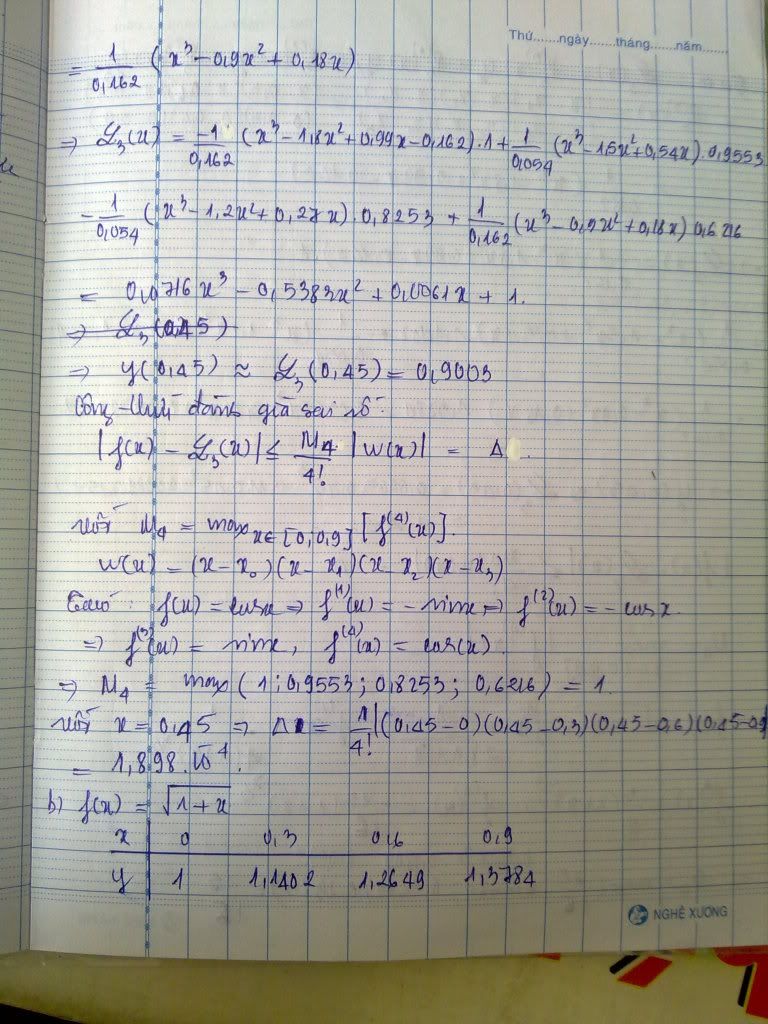 Thứ.......ngày.......tháng.......năm.......
= 1/0,162 (x³ - 0,9x² + 0,18x)
⇒ ℒ₃(x) = -1/0,162 (x³ - 1,8x² + 0,99x - 0,162).1 + 1/0,054 (x³ - 1,5x² + 0,54x).0,9553
- 1/0,054 (x³ - 1,2x² + 0,27x).0,8253 + 1/0,162 (x³ - 0,9x² + 0,18x) 0,6216
= 0,0716x³ - 0,5383x² + 0,0061x + 1.
⇒ ℒ₃(0,45)
⇒ y(0,45) ≈ ℒ₃(0,45) = 0,9003
Công thức đánh giá sai số:
|f(x) - ℒ₃(x)| ≤ M₄/4! |w(x)| = Δ.
với M₄ = max x∈[0,0,9] [f⁽⁴⁾(x)].
w(x) = (x-x₀)(x-x₁)(x x₂)(x-x₃)
Có: f(x) = cosx ⇒ f⁽¹⁾(x) = -sinx ⇒ f⁽²⁾(x) = -cosx.
⇒ f⁽³⁾(x) = sinx, f⁽⁴⁾(x) = cos(x).
⇒ M₄ = max(1; 0,9553; 0,8253; 0,6216) = 1.
với x = 0,45 ⇒ Δ = 1/4! |(0,45-0)(0,45-0,3)(0,45-0,6)(0,45-0,9
= 1,898.10⁻⁴.
b) f(x) = √1+x
x 0 0,3 0,6 0,9
y 1 1,1402 1,2649 1,3784
NGHÊ XUONG